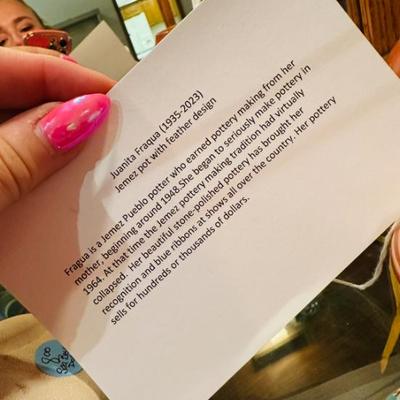 Juanita Fraqua (1935-2023)
Jemez pot with feather design
Fragua is a Jemez Pueblo potter who earned pottery making from her
mother, beginning around 1948.She began to seriously make pottery in
1964. At that time the Jemez pottery making tradition had virtually
collapsed. Her beautiful stone-polished pottery has brought her
recognition and blue ribbons at shows all over the country. Her pottery
sells for hundreds or thousands of dollars.